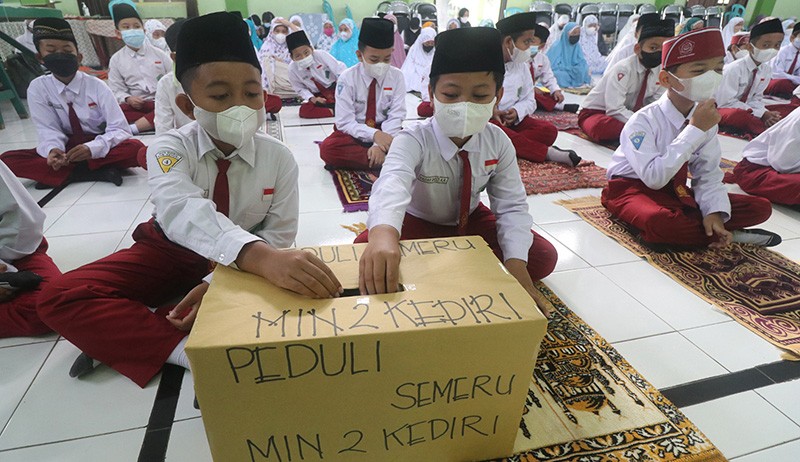 PEDULI SEMERU
MIN 2 KEDIRI
PEDULI
SEMERU
MIN 2 KEDIRI